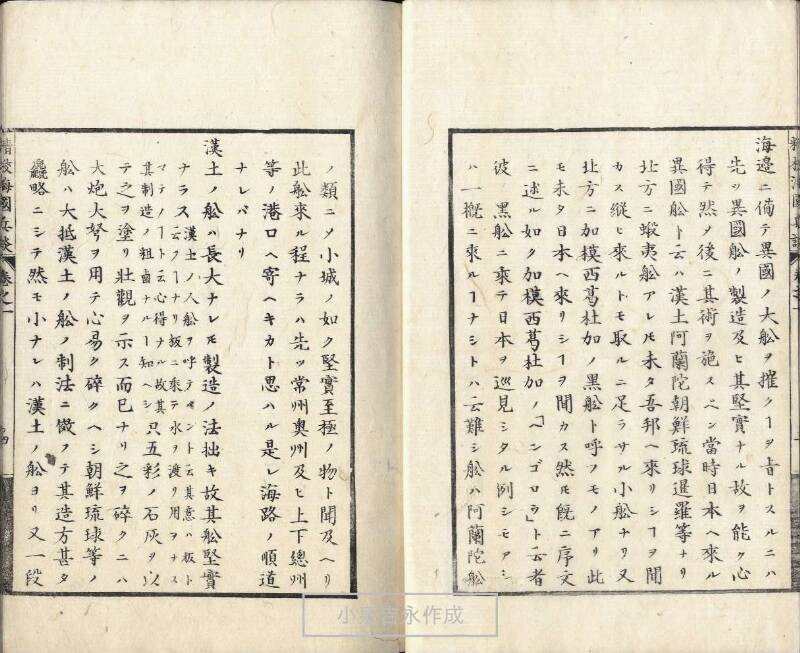 海邉ニ備テ異國ノ大舩ヲ摧クヿヲ旨トスルニハ
先ツ異國舩ノ製造及ヒ其堅實ナル故ヲ能ク心
得テ然ノ後ニ其術ヲ施スベシ當時日本ヘ來ル
異國舩ト云ハ漢土阿蘭陀朝鮮琉球暹羅等ナリ
北方ニ蝦夷舩アレ𪜈未タ吾邦ヘ來リシヿヲ聞
カス縱ヒ來ルトモ取ルニ足ラサル小舩ナリ又
北方ニ加模西葛杜加ノ黒舩ト呼フモノアリ此
モ未タ日本ヘ來リシヿヲ聞カス然𪜈既ニ序文
ニ述ル如ク加模西葛杜加ノ「ベンゴロウ」ト云者
彼ノ黒舩ニ乘テ日本ヲ巡見シタル例シモアレ
ハ一概ニ來ルヿナシトハ云難シ舩ハ阿蘭陀舩
ノ類ニメ小城ノ如ク堅實至極ノ物ト聞及ヘリ
此舩來ル程ナラハ先ツ常州奥州及ヒ上下總州
等ノ港口ヘ寄ヘキカト思ハル是レ海路ノ順道
ナレバナリ
漢土ノ舩ハ長大ナレ𪜈製造ノ法拙キ故其舩堅實
ナラス漢土ノ人舩ヲ呼テ
云其意ハ板ト
云フヿナリ板ニ乘テ水ヲ渡リ用ヲナス
マテノヿト云心得ナル故
其制造ノ粗鹵ナルヿ知ヘシ只五彩ノ石灰ヲ以
テ之ヲ塗リ壯觀ヲ示ス而已ナリ之ヲ碎クニハ
大炮大弩ヲ用テ心易ク碎クヘシ朝鮮琉球等ノ
舩ハ大抵漢土ノ舩ノ制法ニ倣フテ其造方甚タ
麁略ニシテ然モ小ナレハ漢土ノ舩ヨリ又一段
精校海國兵談
卷之一
小泉吉永作成